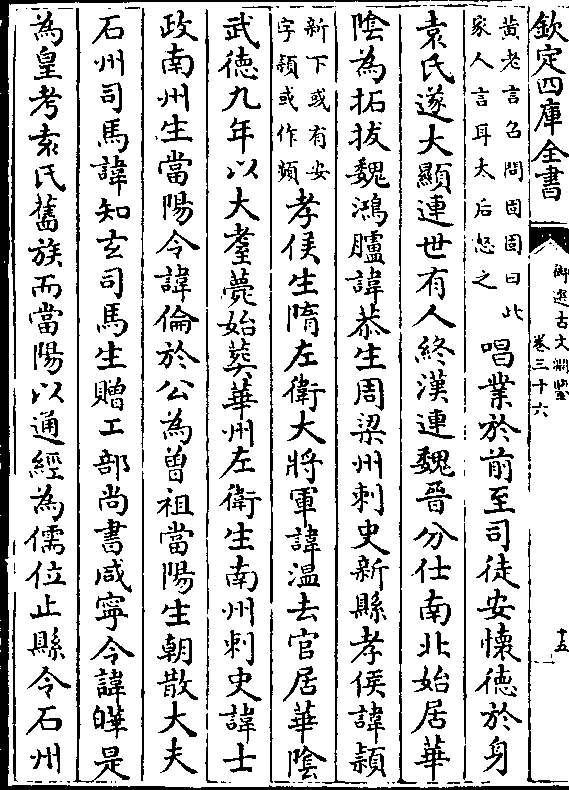 欽定四庫全書
御選古文淵鑒
卷三十六
十五
黄老言召問固固曰此
家人言耳太后怒之
唱業於前至司徒安懷德於身
袁氏遂大顯連世有人終漢連魏晉分仕南北始居華
隂為拓拔魏鴻臚諱恭生周梁州刺史新縣孝侯諱潁
新下或有安
字潁或作頻
孝侯生隋左衛大將軍諱温去官居華隂
武德九年以大耋薨始葬華州左衛生南州刺史諱士
政南州生當陽令諱倫於公為曾祖當陽生朝散大夫
石州司馬諱知玄司馬生贈工部尚書咸寧令諱曄是
為皇考袁氏舊族而當陽以通經為儒位止縣令石州